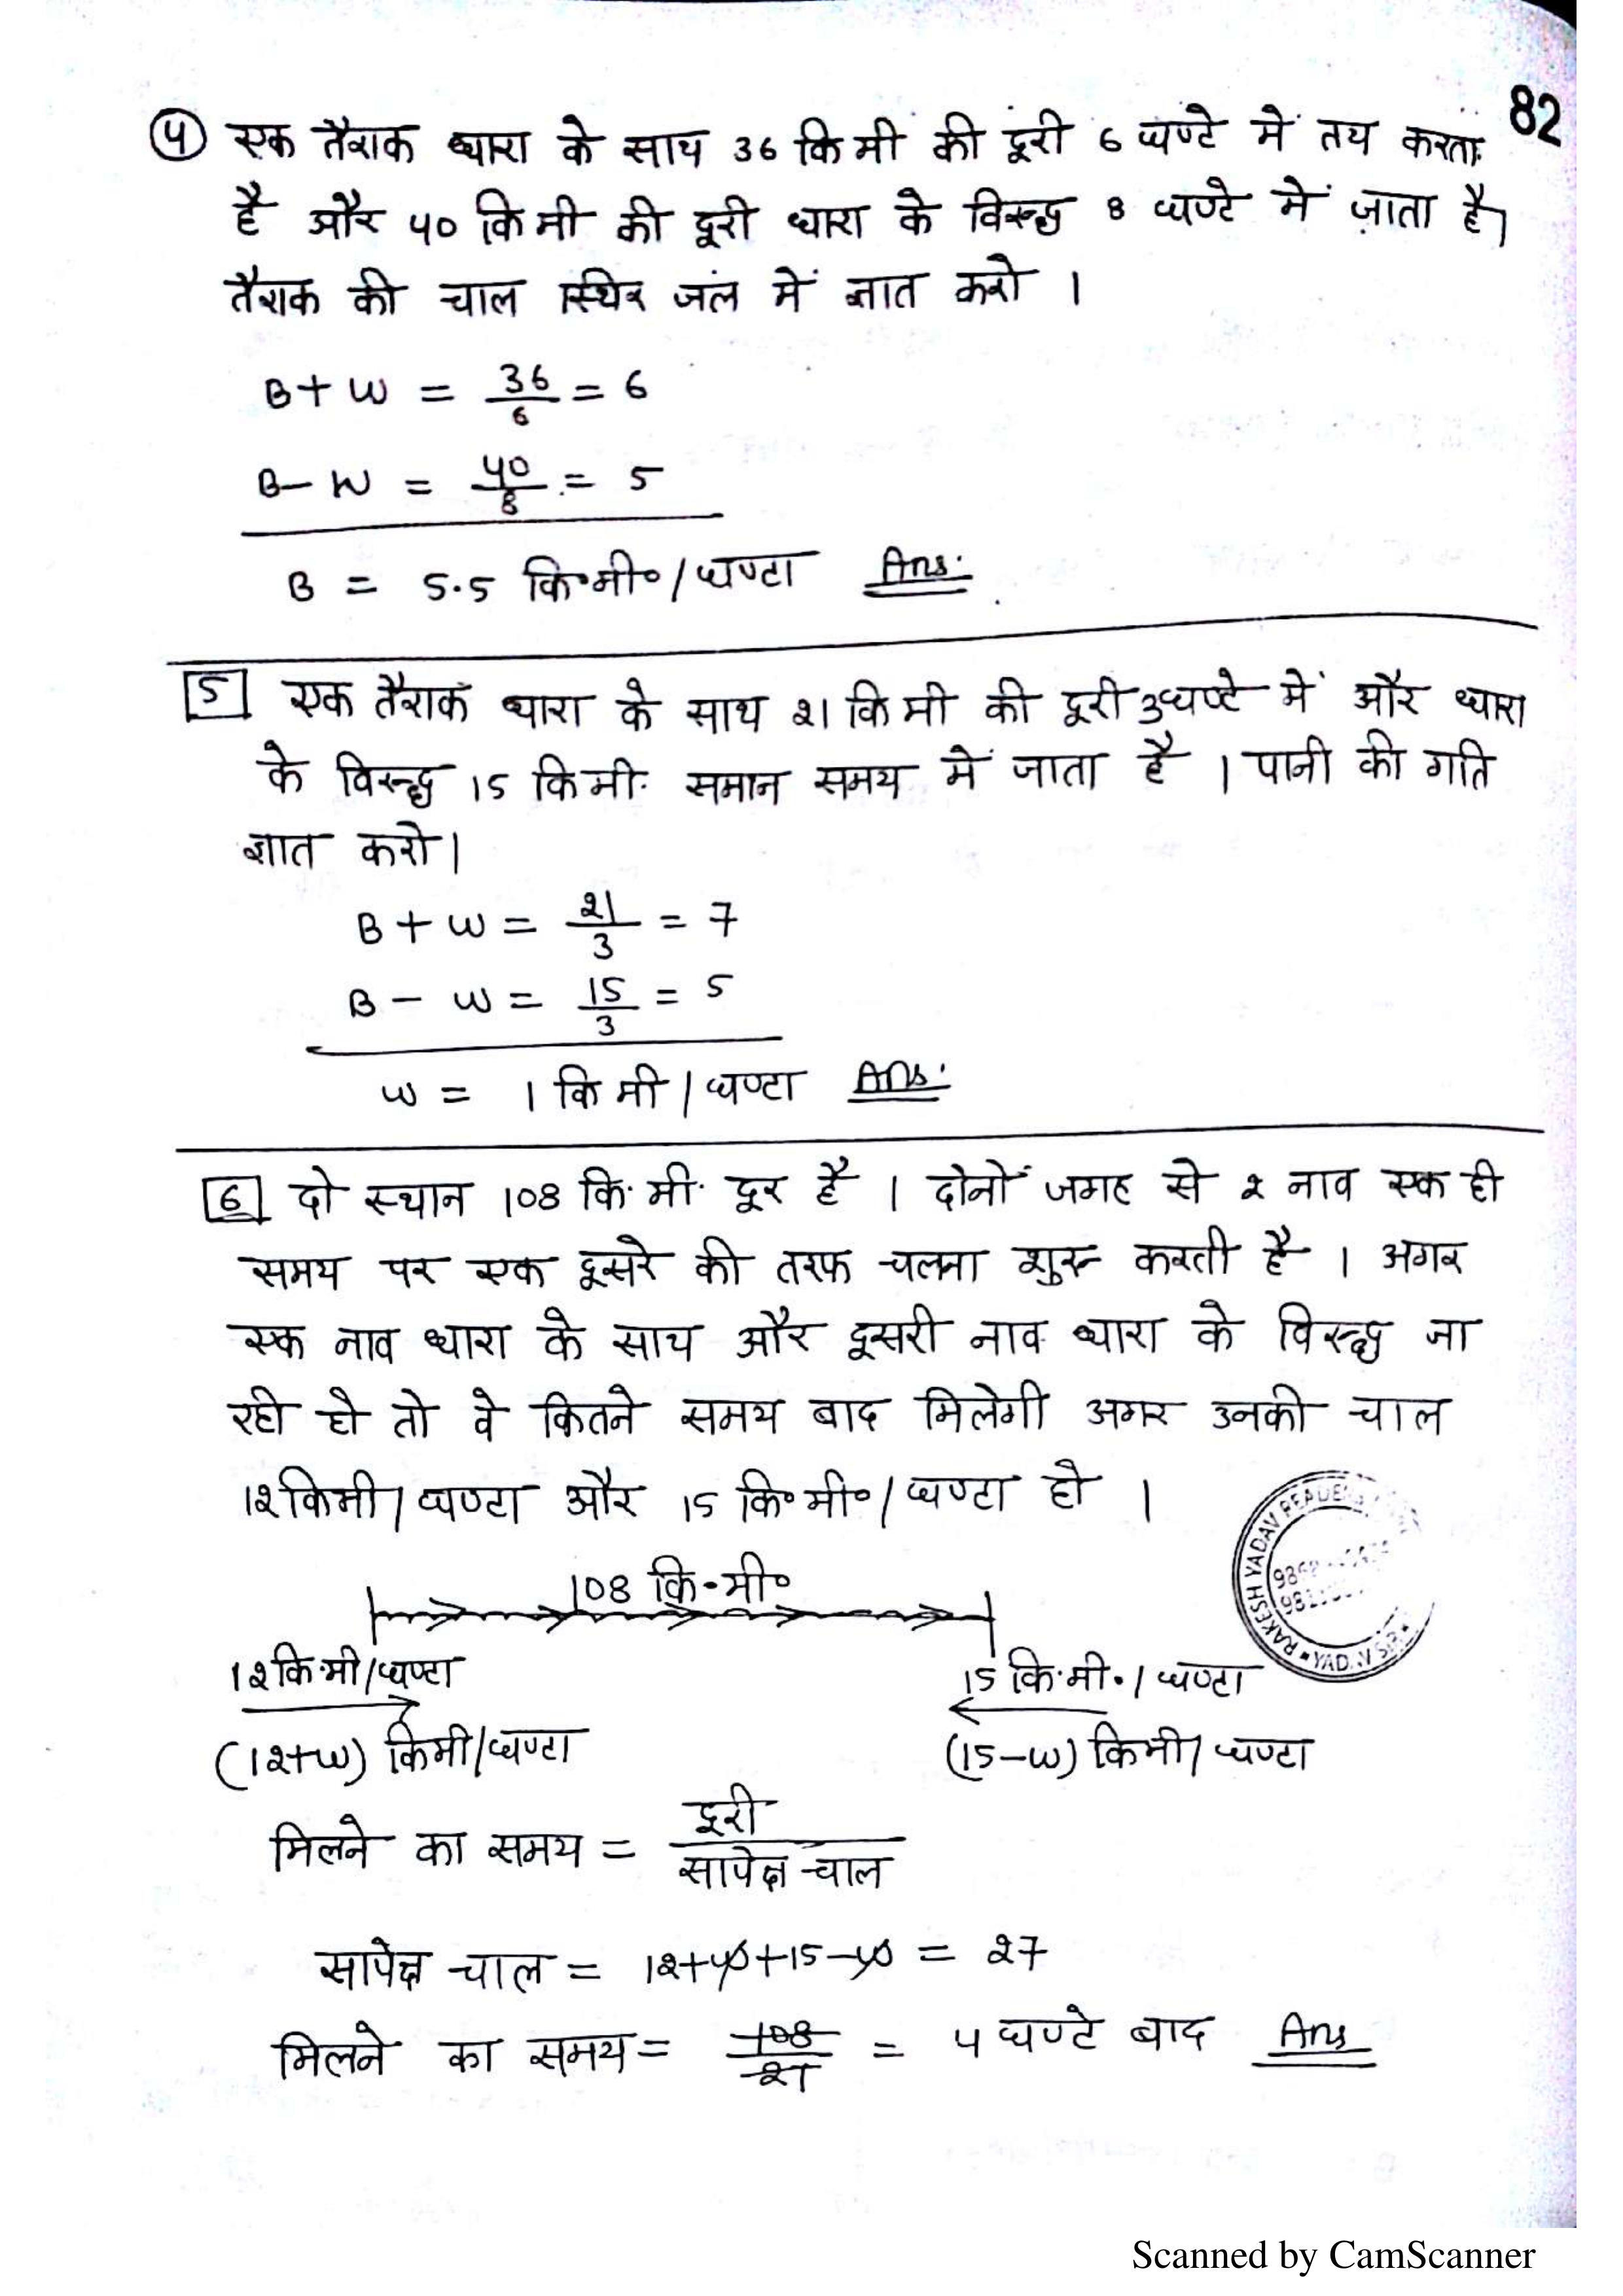 82
④ एक तैराक धारा के साथ 36 कि मी की दूरी 6 घण्टे में तय करता
है और 40 कि मी की दूरी धारा के विरूद्ध 8 घण्टे में जाता है।
तैराक की चाल स्थिर जल में ज्ञात करो ।
B + W = 36/6 = 6
B - W = 40/8 = 5
B = 5.5 कि॰मी॰/घण्टा Ans.
5 एक तैराक धारा के साथ 21 कि मी की दूरी 3 घण्टे में और धारा
के विरूद्ध 15 कि मी. समान समय में जाता है । पानी की गति
ज्ञात करो।
B + W = 21/3 = 7
B - W = 15/3 = 5
W = 1 कि मी / घण्टा Ans.
6 दो स्थान 108 कि. मी. दूर है । दोनों जगह से 2 नाव एक ही
समय पर एक दूसरे की तरफ चलना शुरू करती है । अगर
एक नाव धारा के साथ और दूसरी नाव धारा के विरूद्ध जा
रही हो तो वे कितने समय बाद मिलेगी अगर उनकी चाल
12 किमी/घण्टा और 15 कि॰मी॰/घण्टा हो ।
108 कि.मी॰
12 कि.मी/घण्टा 15 कि.मी./घण्टा
(12+W) किमी/घण्टा (15-W) किमी/घण्टा
मिलने का समय = दूरी/सापेक्ष चाल
सापेक्ष चाल = 12+W+15-W = 27
मिलने का समय = 108/27 = 4 घण्टे बाद Ans
RAKESH YADAV
Scanned by CamScanner